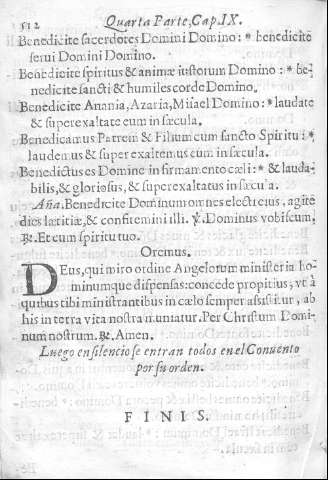 512 Quarta Parte, Cap. IX.
Benedicite sacerdotes Domini Domino: * benedicite
serui Domini Domino.
Benedicite spiritus & animæ iustorum Domino: * be-
nedicite sancti & humiles corde Domino.
Benedicite Anania, Azaria, Misael Domino: * laudate
& superexaltate eum in sæcula.
Benedicamus Patrem & Filium cum sancto Spiritu: *
laudemus & superexaltemus eum in sæcula.
Benedictus es Domine in firmamento cæli: * & lauda-
bilis, & gloriosus, & superexaltatus in sæcula.
Aña. Benedicite Dominum omnes electi eius, agite
dies lætitiæ, & confitemini illi. ℣. Dominus vobiscum,
℟. Et cum spiritu tuo.
Oremus.
DEus, qui miro ordine Angelorum ministeria ho-
minumque dispensas: concede propitius, vt à
quibus tibi ministrantibus in cælo semper assistitur, ab
his in terra vita nostra muniatur. Per Christum Domi-
num nostrum. ℟. Amen.
Luego en silencio se entran todos en el Conuento
por su orden.
FINIS.